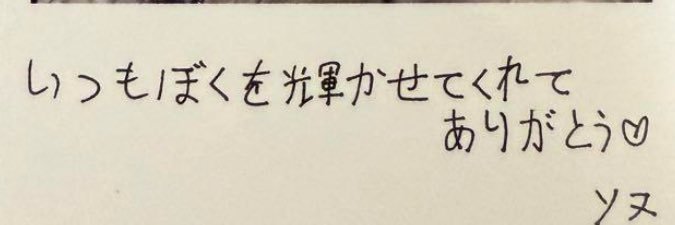 いつもぼくを輝かせてくれて
ありがとう♡
ソヌ